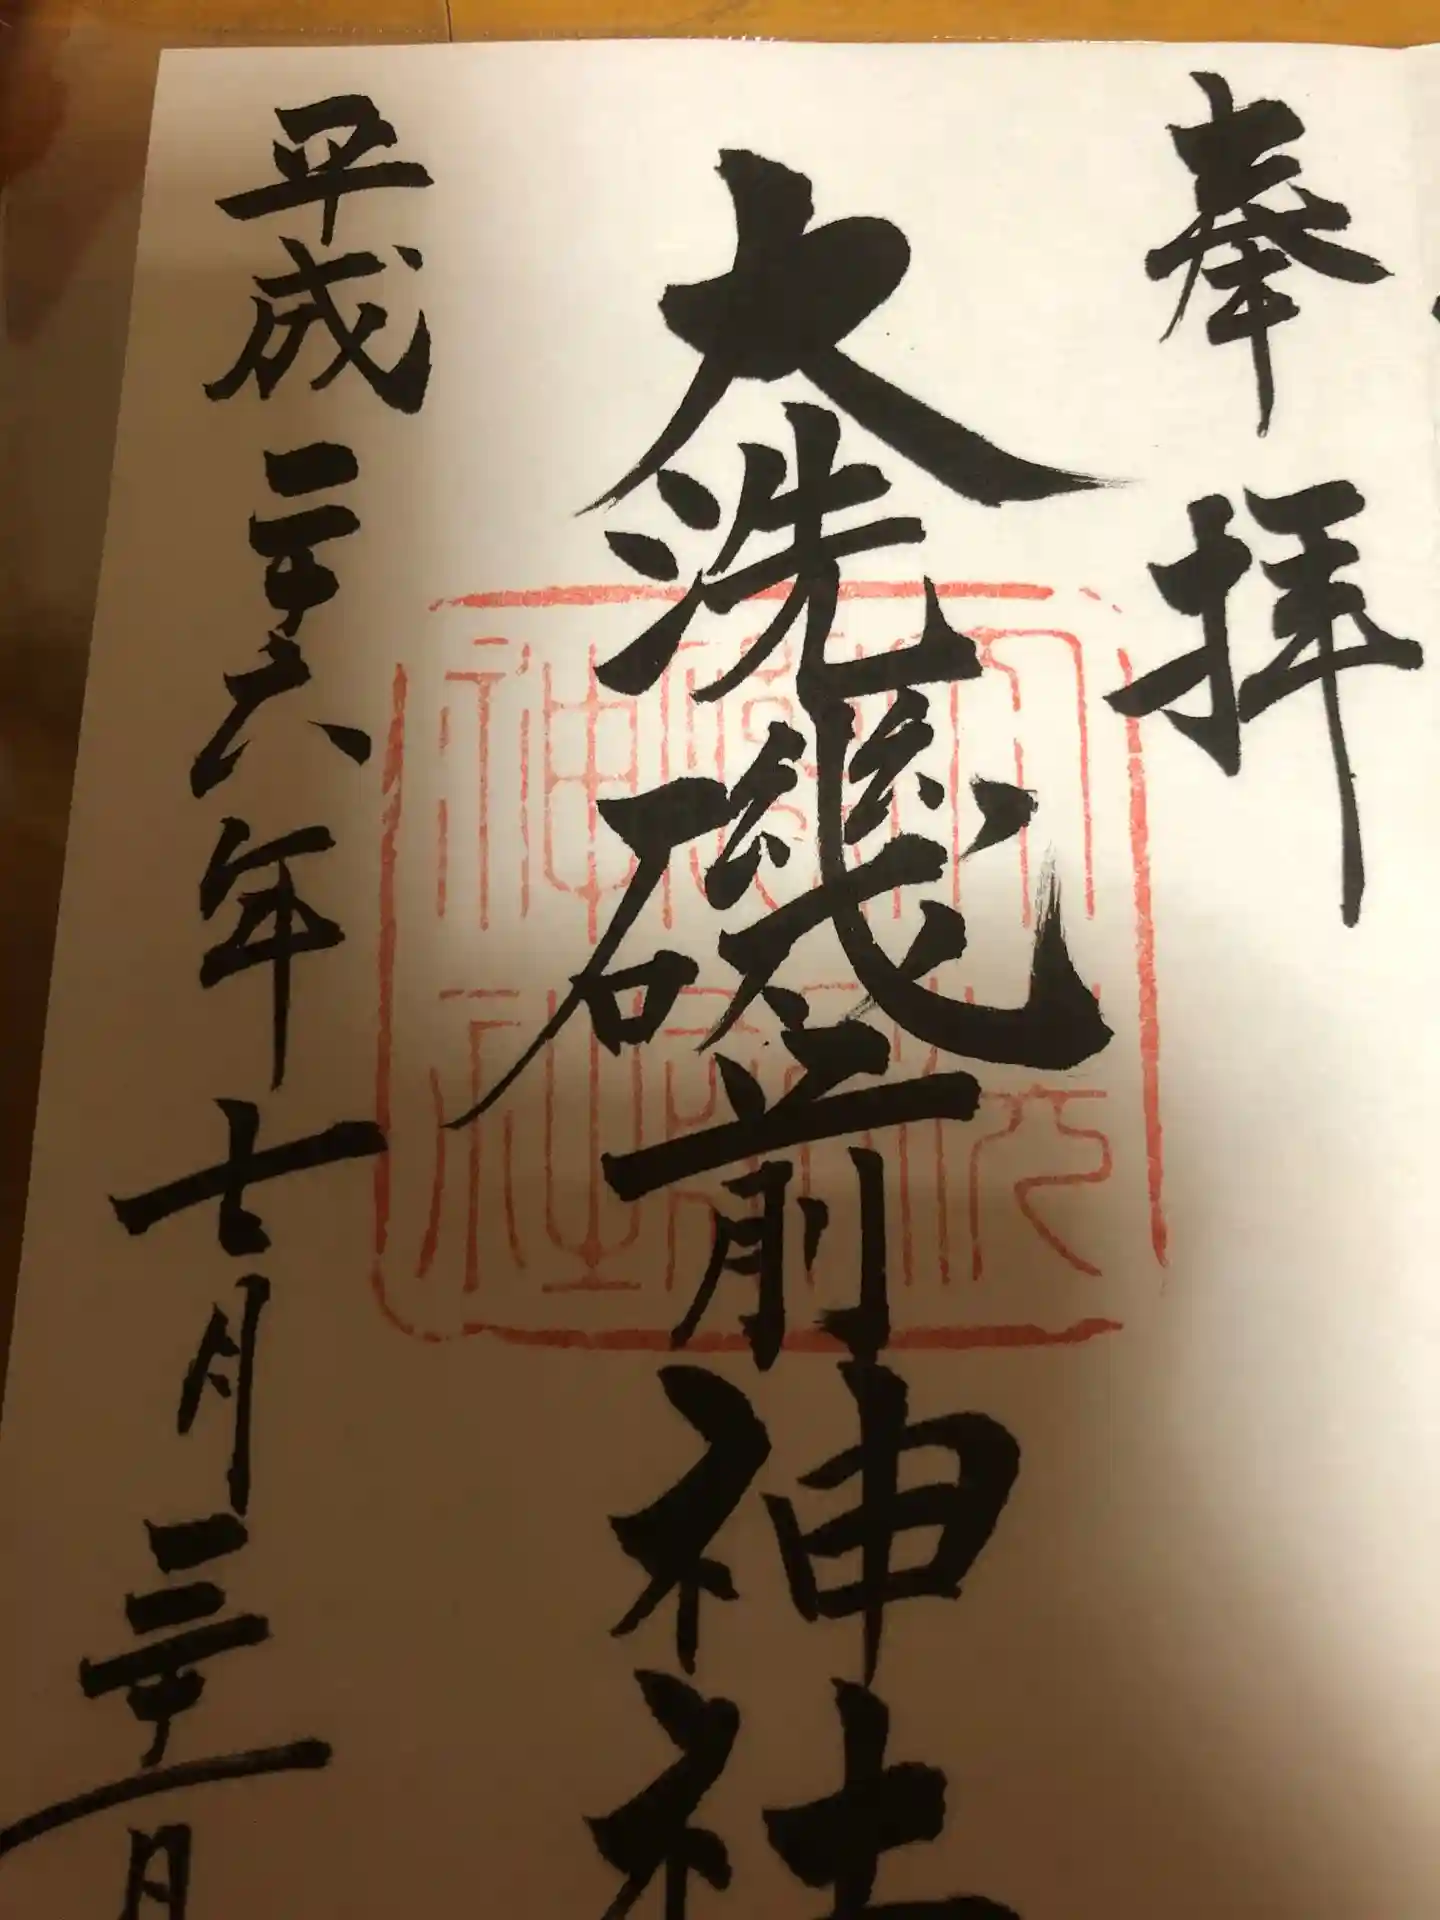 奉拝
大洗磯前神社
平成二十六年七月三十一日
大洗
磯前
神社